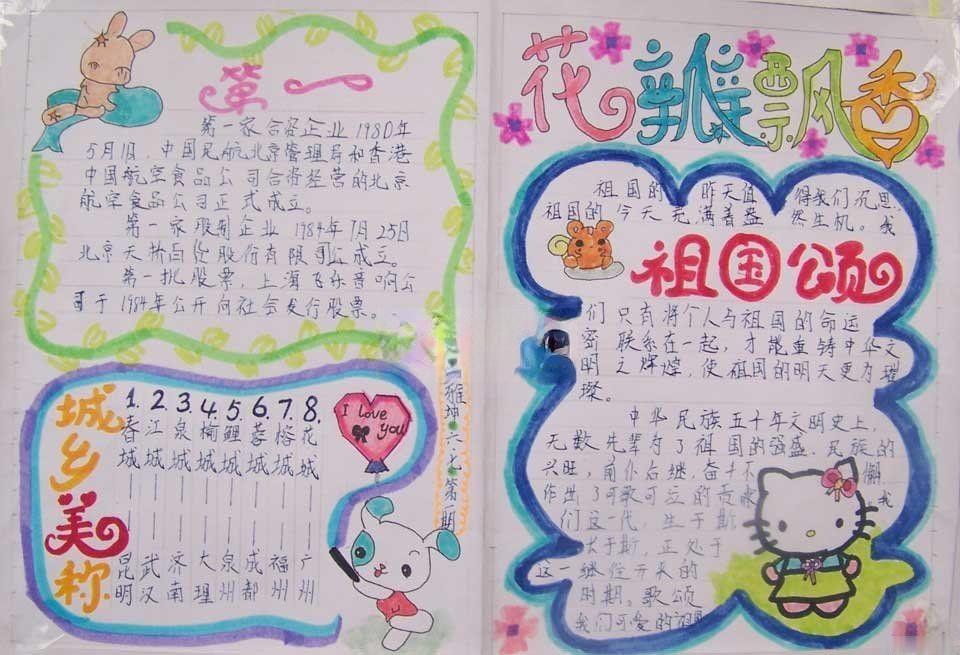 第一
第一家合资企业1980年
5月1日，中国民航北京管理局和香港
中国航空食品公司合资经营的北京
航空食品公司正式成立。
第一家股制企业1984年7月25日
北京天桥百货股份有限司公成立。
第一批股票，上海飞乐音响公
司于1984年公开向社会发行股票。
城乡美称
1.春城——昆明
2.江城——武汉
3.泉城——济南
4.榆城——大理
5.鲤城——泉州
6.蓉城——成都
7.榕城——福州
8.花城——广州
I love
you
第二期
花瓣飘香
祖国的昨天值得我们沉思
祖国的今天充满着盎然生机。我
祖国颂
们只有将个人与祖国的命运
密联系在一起，才能重铸中华文
明之辉煌，使祖国的明天更为璀
璨。
中华民族五千年文明史上，
无数先辈为了祖国的强盛.民族的
兴旺，前仆后继，奋斗不懈
作出了可歌可泣的贡献。我
们这一代，生于斯
长于斯，正处于
这一继往开来的
时期。歌颂
我们可爱的祖国